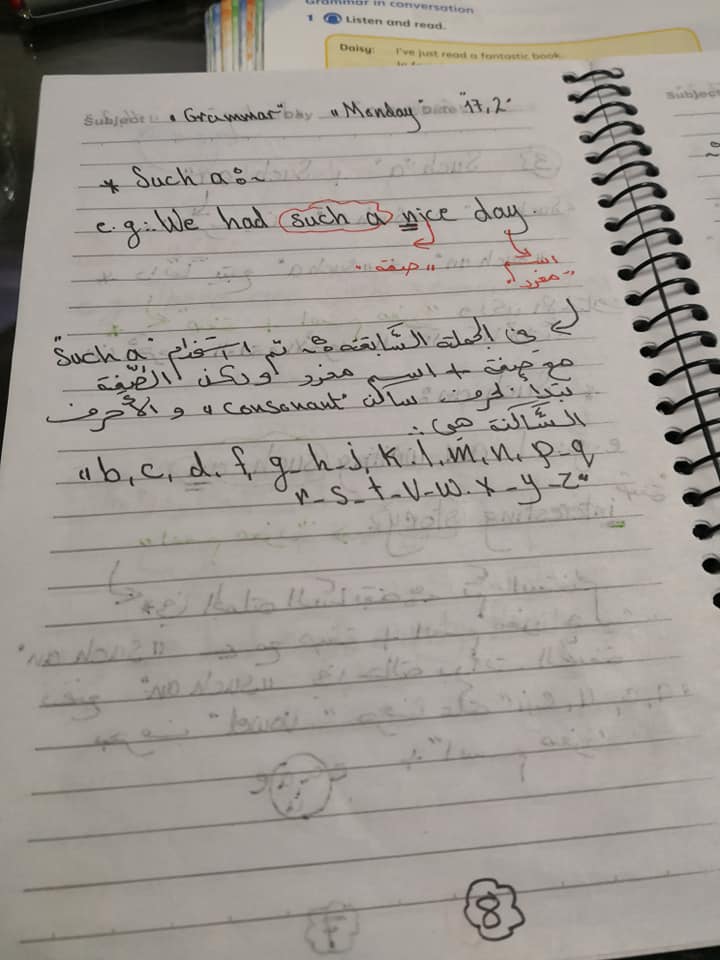 Grammar in conversation
1 Listen and read.
Daisy: I've just read a fantastic book.
Subject: "Grammar" Day "Monday" Date "17,2"
Subject
* Such a:~
e.g: We had such a nice day.
"صفة"
اسم
"مفرد"
في الجملة السابقة: تم استخدام "Such a"
مع صفة + اسم مفرد ولكن الصّفة
تبدأ بحرف ساكن "consonant" و الأحرف
السّاكنة هي:
"b, c, d, f, g-h-j, k. l, m, n, p-q
r-s-t-v-w.x-y-z"
8